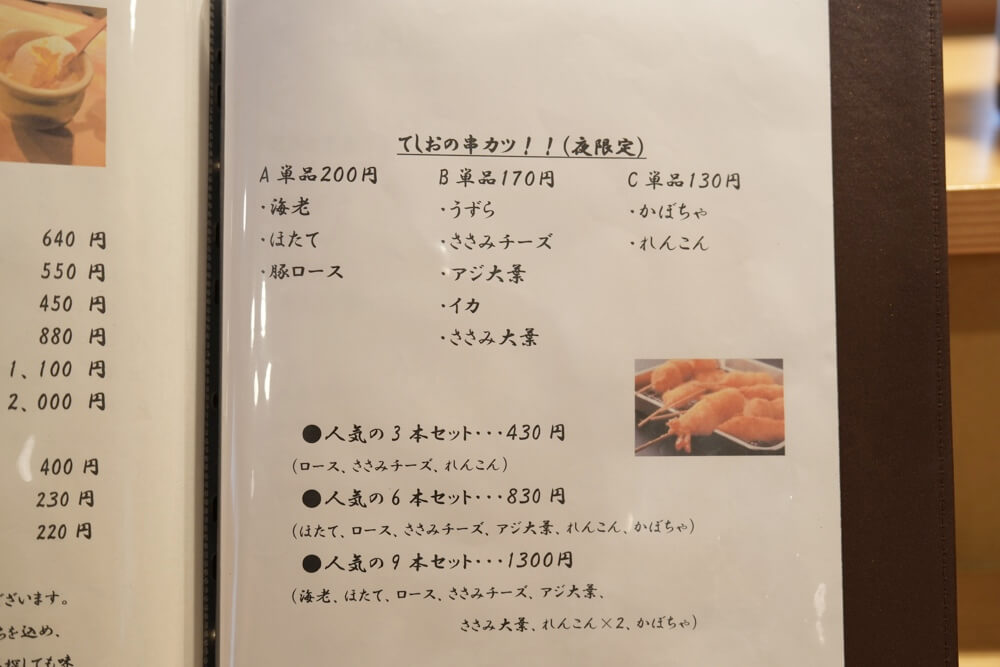 640 円
550 円
450 円
880 円
1、100 円
2、000 円
400 円
230 円
220 円
ざいます。
を込め、
しても味
てしおの串カツ！！(夜限定)
A 単品200円
・海老
・ほたて
・豚ロース
B 単品170円
・うずら
・ささみチーズ
・アジ大葉
・イカ
・ささみ大葉
C 単品130円
・かぼちゃ
・れんこん
●人気の3本セット・・・430円
(ロース、ささみチーズ、れんこん)
●人気の6本セット・・・830円
(ほたて、ロース、ささみチーズ、アジ大葉、れんこん、かぼちゃ)
●人気の9本セット・・・1300円
(海老、ほたて、ロース、ささみチーズ、アジ大葉、
ささみ大葉、れんこん×2、かぼちゃ)